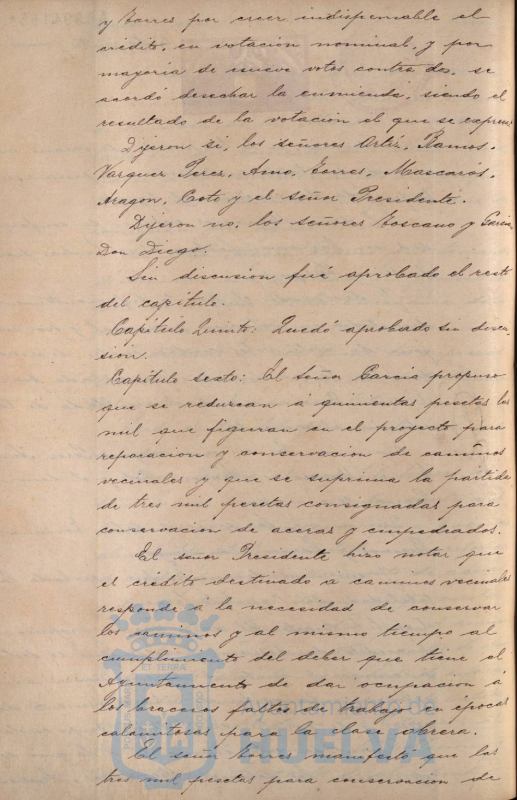 y Torres por creer indispensable el
crédito, en votación nominal, y por
mayoría de nueve votos contra dos, se
acordó desechar la enmienda, siendo el
resultado de la votación el que se expresa:
Dijeron si, los señores Ortiz, Ramos,
Vazquez Perez, Amo, Torres, Mascarós,
Aragon, Coto y el señor Presidente.
Dijeron no, los señores Toscano y Garcia
Don Diego.
Sin discusion fué aprobado el resto
del capítulo.
Capítulo Quinto: Quedó aprobado sin discu-
sión.
Capítulo sexto: El señor Garcia propuso
que se reduzcan á quinientas pesetas las
mil que figuran en el proyecto para
reparación y conservacion de caminos
vecinales y que se suprima la partida
de tres mil pesetas consignadas para
conservacion de aceras y empedrados.
El señor Presidente hizo notar que
el crédito destinado á caminos vecinales
responde á la necesidad de conservar
los caminos y al mismo tiempo al
cumplimiento del deber que tiene el
Ayuntamiento de dar ocupacion á
los braceros faltos de trabajo en épocas
calamitosas para la clase obrera.
El señor Torres manifestó que las
tres mil pesetas para conservacion de
ET TERRA
Ayuntamiento de
HUELVA